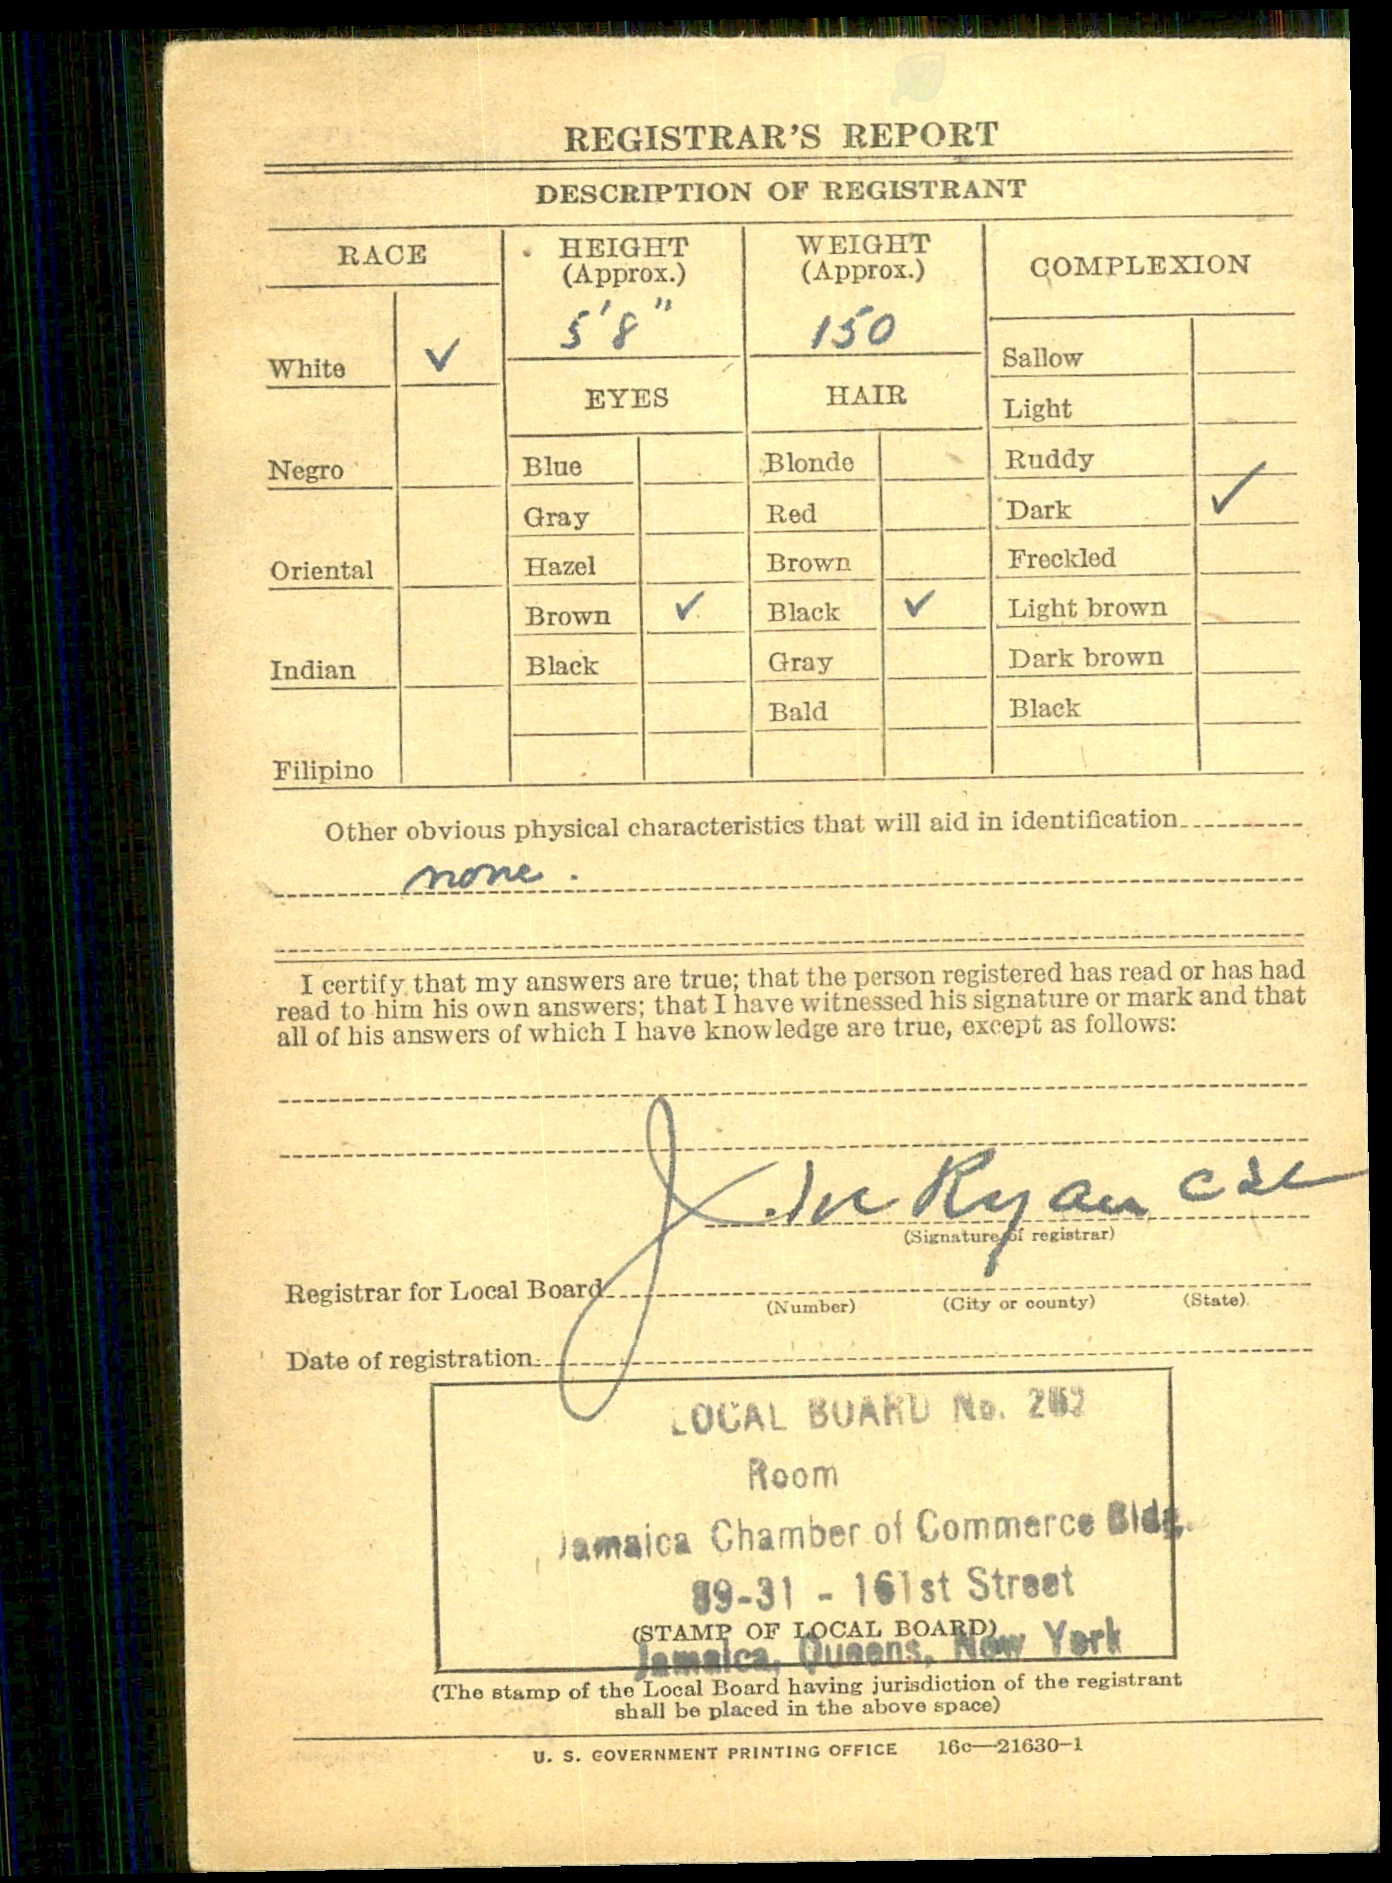 REGISTRAR'S REPORT
DESCRIPTION OF REGISTRANT
RACE
HEIGHT
(Approx.)
WEIGHT
(Approx.)
COMPLEXION
5'8"
150
White ✓
Sallow
EYES
HAIR
Light
Negro
Blue
Blonde
Ruddy
Gray
Red
Dark ✓
Oriental
Hazel
Brown
Freckled
Brown ✓
Black ✓
Light brown
Indian
Black
Gray
Dark brown
Bald
Black
Filipino
Other obvious physical characteristics that will aid in identification
none.
I certify that my answers are true; that the person registered has read or has had
read to him his own answers; that I have witnessed his signature or mark and that
all of his answers of which I have knowledge are true, except as follows:
Ryan
(Signature of registrar)
Registrar for Local Board
(Number) (City or county) (State)
Date of registration
LOCAL BOARD No.
Room
Jamaica Chamber of Commerce Bldg.
89-31 - 161st Street
(STAMP OF LOCAL BOARD)
Jamaica, Queens, New York
(The stamp of the Local Board having jurisdiction of the registrant
shall be placed in the above space)
U. S. GOVERNMENT PRINTING OFFICE 16c—21630-1